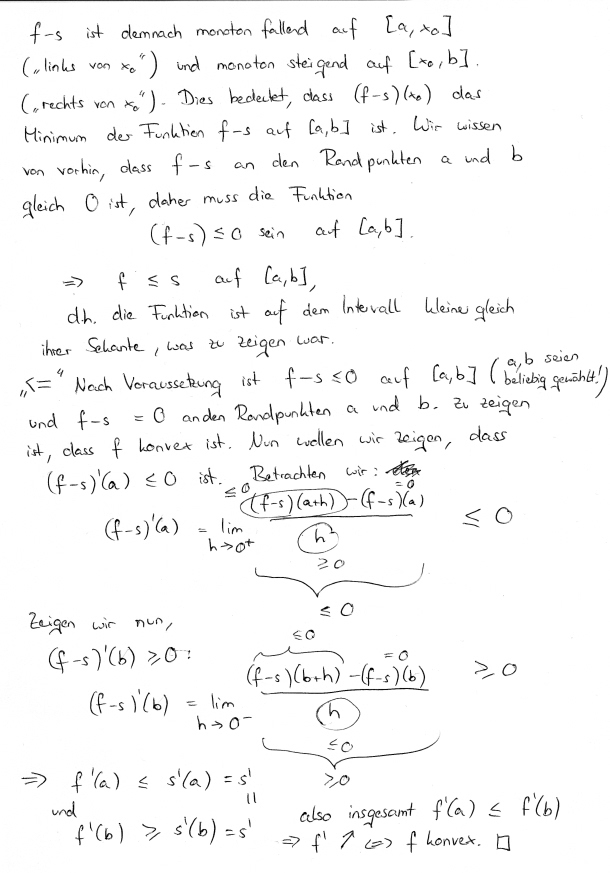 f-s ist demnach monoton fallend auf [a, x₀]
(„links von x₀“) und monoton steigend auf [x₀, b].
(„rechts von x₀“). Dies bedeutet, dass (f-s)(x₀) das
Minimum der Funktion f-s auf [a,b] ist. Wir wissen
von vorhin, dass f-s an den Randpunkten a und b
gleich 0 ist, daher muss die Funktion
(f-s) ≤ 0 sein auf [a,b].
⇒ f ≤ s auf [a,b],
d.h. die Funktion ist auf dem Intervall kleiner gleich
ihrer Sekante, was zu zeigen war.
„<=“ Nach Voraussetzung ist f-s ≤ 0 auf [a,b] (a,b seien
beliebig gewählt!)
und f-s = 0 an den Randpunkten a und b. Zu zeigen
ist, dass f konvex ist. Nun wollen wir zeigen, dass
(f-s)'(a) ≤ 0 ist. Betrachten wir:
≤0 =0
(f-s)(a+h) - (f-s)(a)
(f-s)'(a) = lim ≤ 0
h→0⁺ h
≥0
≤0
Zeigen wir nun,
≤0
(f-s)'(b) ≥ 0: =0
(f-s)(b+h) - (f-s)(b) ≥ 0
(f-s)'(b) = lim
h→0⁻ h
≤0
≥0
⇒ f'(a) ≤ s'(a) = s'
und || also insgesamt f'(a) ≤ f'(b)
f'(b) ≥ s'(b) = s' ⇒ f' ↗ ⇔ f konvex. □